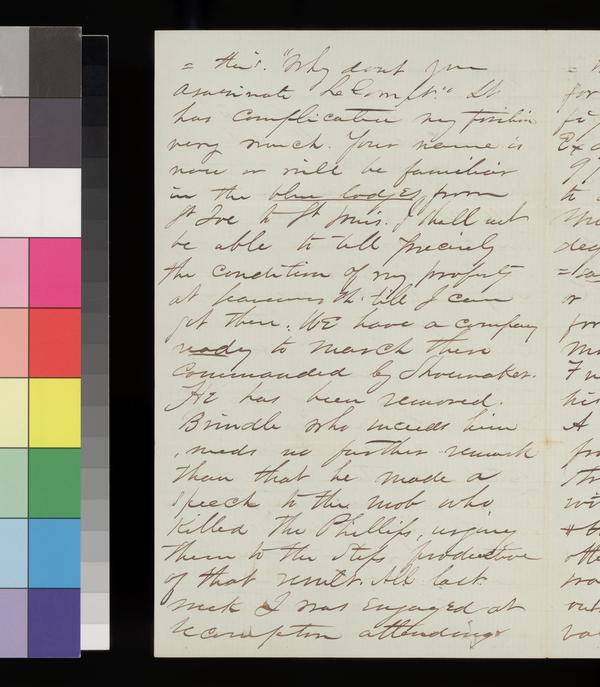 = this. "Why dont you
asassinate LeCompt." It
has complicated my position
very much. Your name is
now or will be familiar
in the blue lodges from
St Joe to St Louis. I shall not
be able to tell precisely
the condition of my property
at Leavenworth till I can
get there. WE have a company
ready to march there
commanded by Shoemaker.
HE has been removed.
Brindle who suceeds him
, needs no further remark
than that he made a
speech to the mob who
killed the Phillips, urging
them to the steps productive
of that result. All last
week I was engaged at
Lecompton attending
= 
for
Ex
to
or
for
A